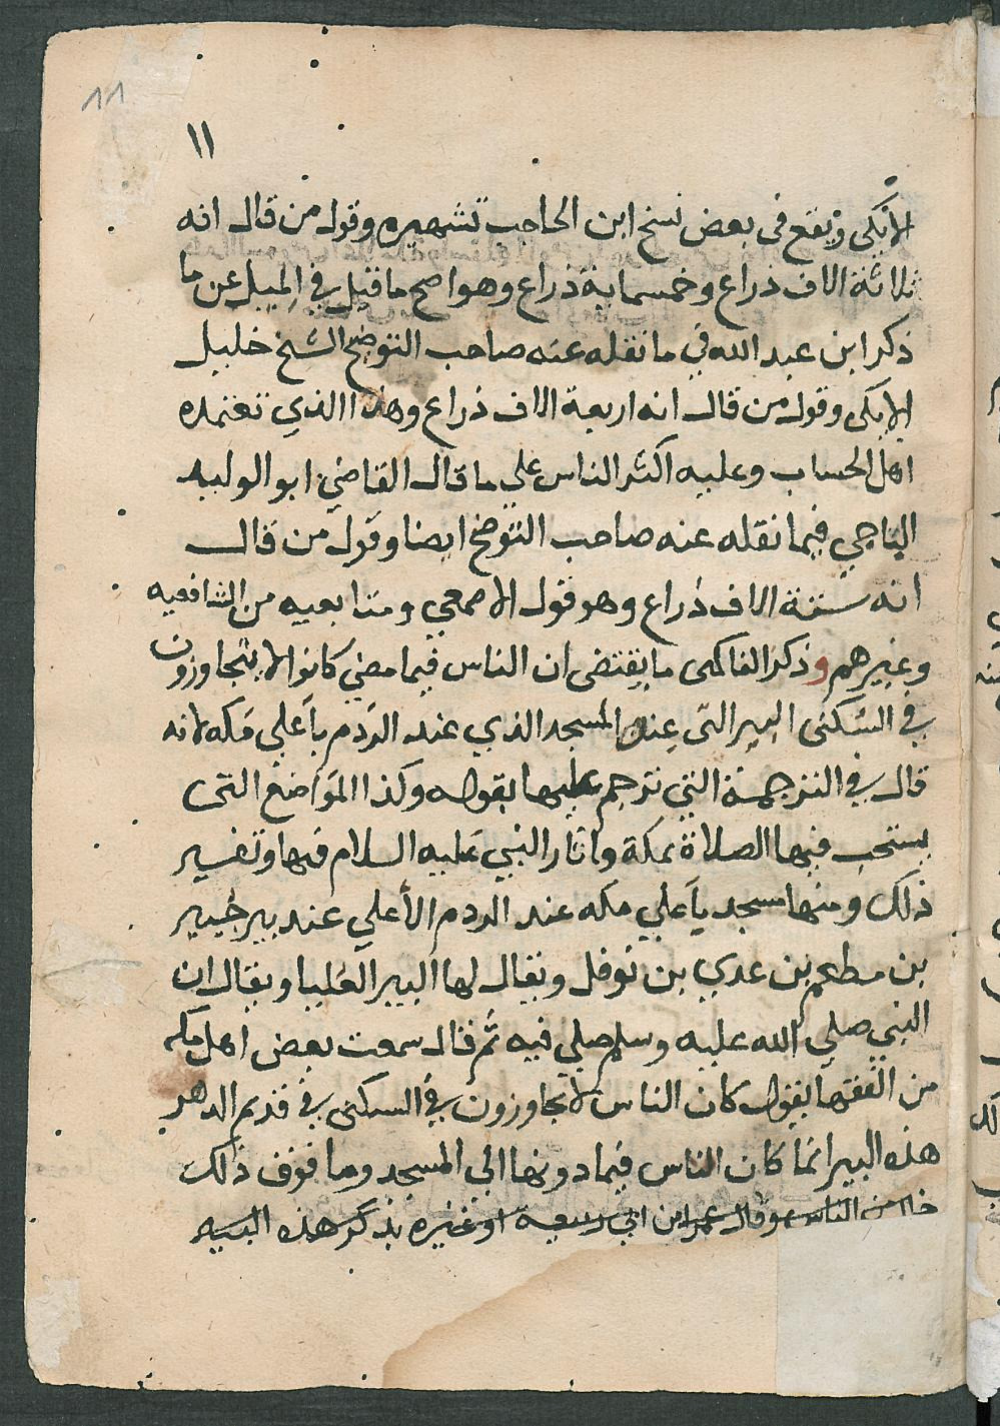 ١١
١١
الابكي ويقع فى بعض نسخ ابن الحاجب تشهيره وقول من قال انه
ثلاثة الاف ذراع وخمسماية ذراع وهو اصح ما قيل في الميل عن ما
ذكر ابن عبد الله في ما نقله عنه صاحب التوضيح الشيخ خليل
الابكى وقول من قال انه اربعة الاف ذراع وهذا الذي تعتمده
اهل الحساب وعليه اكثر الناس على ما قال القاضي ابو الوليد
الباجي فيما نقله عنه صاحب التوضيح ايضا وقول من قال
انه ستة الاف ذراع وهو قول الاصمعي ومتابعيه من الشافعيه
وغيرهم وذكر الفاكهى ما يقتضى ان الناس فيما مضى كانوا لا يتجاوزون
في السكنى البير التى عند المسجد الذي عند الردم باعلي مكه لانه
قال في الترجمة التي ترجم عليها بقوله وكذا المواضع التى
يستحب فيها الصلاة بمكة واثار النبي عليه السلام فيها وتفسير
ذلك ومنها مسجد باعلي مكه عند الردم الأعلي عند بير جبير
بن مطعم بن عدي بن نوفل ويقال لها البير العليا ويقال ان
النبي صلي الله عليه وسلم صلي فيه ثم قال سمعت بعض اهل مكه
من الفقها يقول كان الناس لا يجاوزون في السكنى في قديم الدهر
هذه البير انما كان الناس فيما دونها الي المسجد وما فوق ذلك
خال من الناس وقال عمر ابن ابي ربيعه او غيره يذكر هذه البير